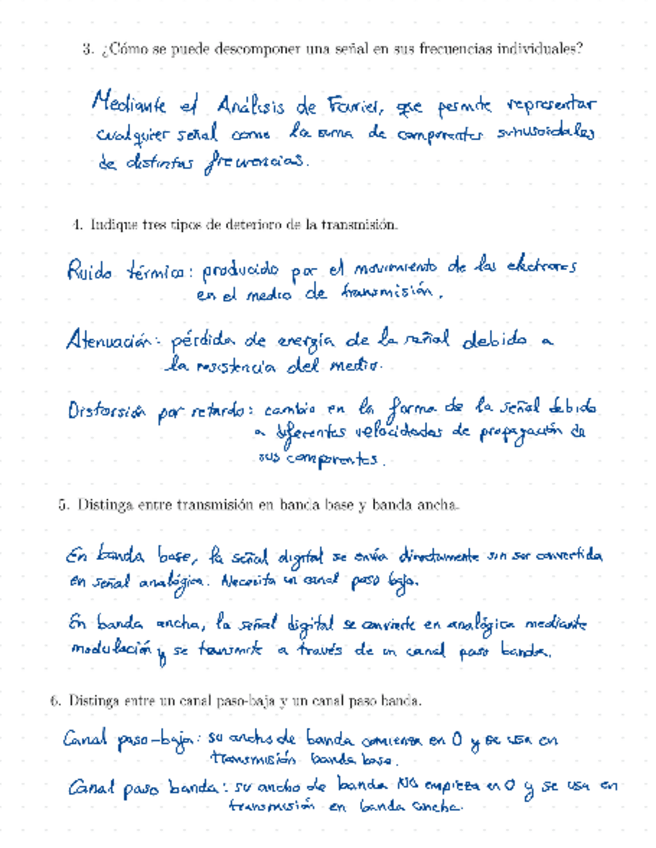 3. ¿Cómo se puede descomponer una señal en sus frecuencias individuales?
Mediante el Análisis de Fourier, que permite representar
cualquier señal como la suma de componentes sinusoidales
de distintas frecuencias.
4. Indique tres tipos de deterioro de la transmisión.
Ruido térmico: producido por el movimiento de los electrones
en el medio de transmisión.
Atenuación: pérdida de energía de la señal debido a
la resistencia del medio.
Distorsión por retardo: cambio en la forma de la señal debido
a diferentes velocidades de propagación de
sus componentes.
5. Distinga entre transmisión en banda base y banda ancha.
En banda base, la señal digital se envía directamente sin ser convertida
en señal analógica. Necesita un canal paso bajo.
En banda ancha, la señal digital se convierte en analógica mediante
modulación y se transmite a través de un canal paso banda.
6. Distinga entre un canal paso-baja y un canal paso banda.
Canal paso-baja: su ancho de banda comienza en 0 y se usa en
transmisión banda base.
Canal paso banda: su ancho de banda NO empieza en 0 y se usa en
transmisión en banda ancha.